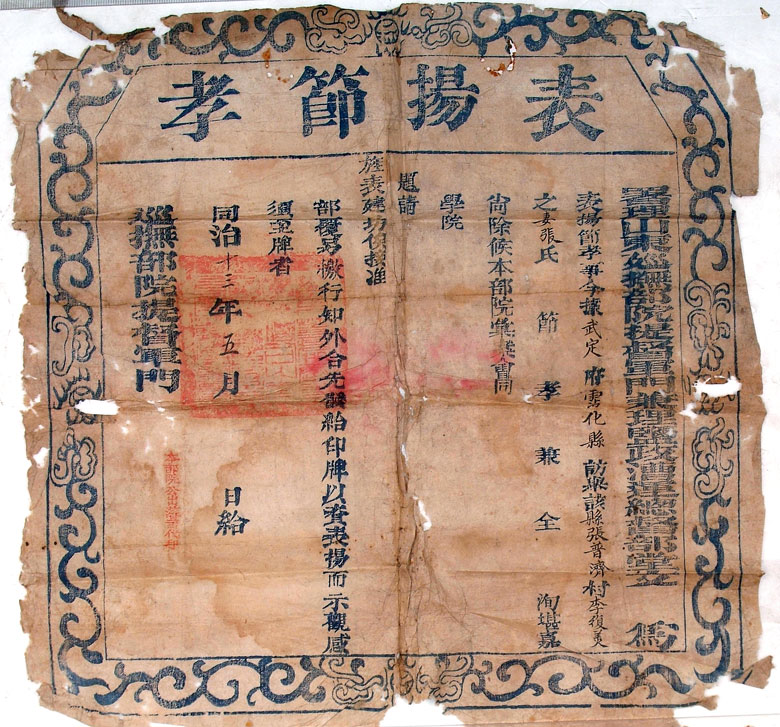 表揚節孝
署理山東巡撫部院提督軍門兼理鹽政漕運總督部堂文 爲
表揚節孝事今據武定府霑化縣訪舉該縣張普濟村李復美
之妻張氏節孝兼全洵堪嘉
尚除候本部院彙案會同
學院
題請
旌表建坊俟接准
部覆另檄行知外合先發給印牌以資表揚而示觀感
須至牌者
同治十三年五月 日給
巡撫部院提督軍門